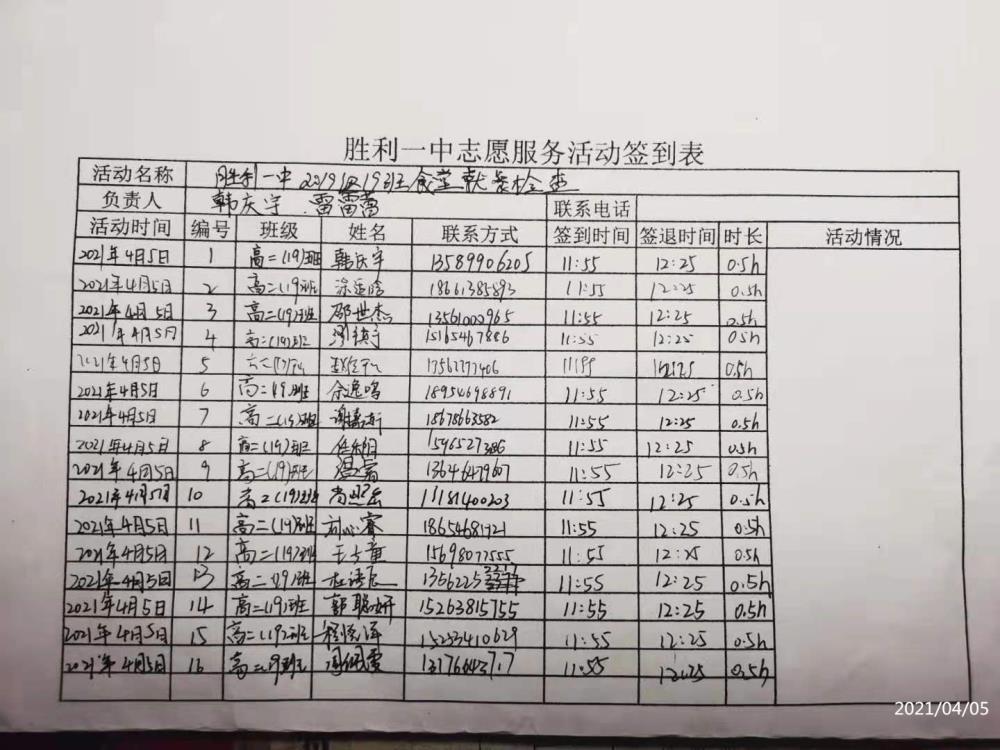 胜利一中志愿服务活动签到表
活动名称 胜利一中2019级19班食堂就餐检查
负责人 韩庆宇 雷蕾蕾 联系电话
活动时间 编号 班级 姓名 联系方式 签到时间 签退时间 时长 活动情况
2021年4月5日 1 高二(19)班 韩庆宇 13589906205 11:55 12:25 0.5h
2021年4月5日 2 高二(19班 18661385893 11:55 12:25 0.5h
2021年4月5日 3 高二(19)班 邵世杰 13561000965 11:55 12:25 0.5h
2021年4月5日 4 高二(19)班 15165467886 11:55 12:25 0.5h
2021年4月5日 5 13562777406 0.5h
2021年4月5日 6 高二(19)班 余逸鸣 18954698891 11:55 12:25 0.5h
2021年4月5日 7 高二(19)班 18678663582 11:55 12:25 0.5h
2021年4月5日 8 高二(19)班 任乐阳 11:55 12:25 0.5h
2021年4月5日 9 高二(19)班 温睿 13646479607 11:55 12:25 0.5h
2021年4月5日 10 高二(19)班 11:55 12:25 0.5h
2021年4月5日 11 高二(19)班 刘心睿 11:55 12:25 0.5h
2021年4月5日 12 高二(19)班 15698077555 11:55 12:25 0.5h
2021年4月5日 13 高二(19)班 11:55 12:25 0.5h
2021年4月5日 14 高二(19)班 郭聪妍 15263815755 11:55 12:25 0.5h
2021年4月5日 15 高二(19)班 15233410629 11:55 12:25 0.5h
2021年4月5日 16 高二19班 周佩雯 11:55 12:25 0.5h
2021/04/05